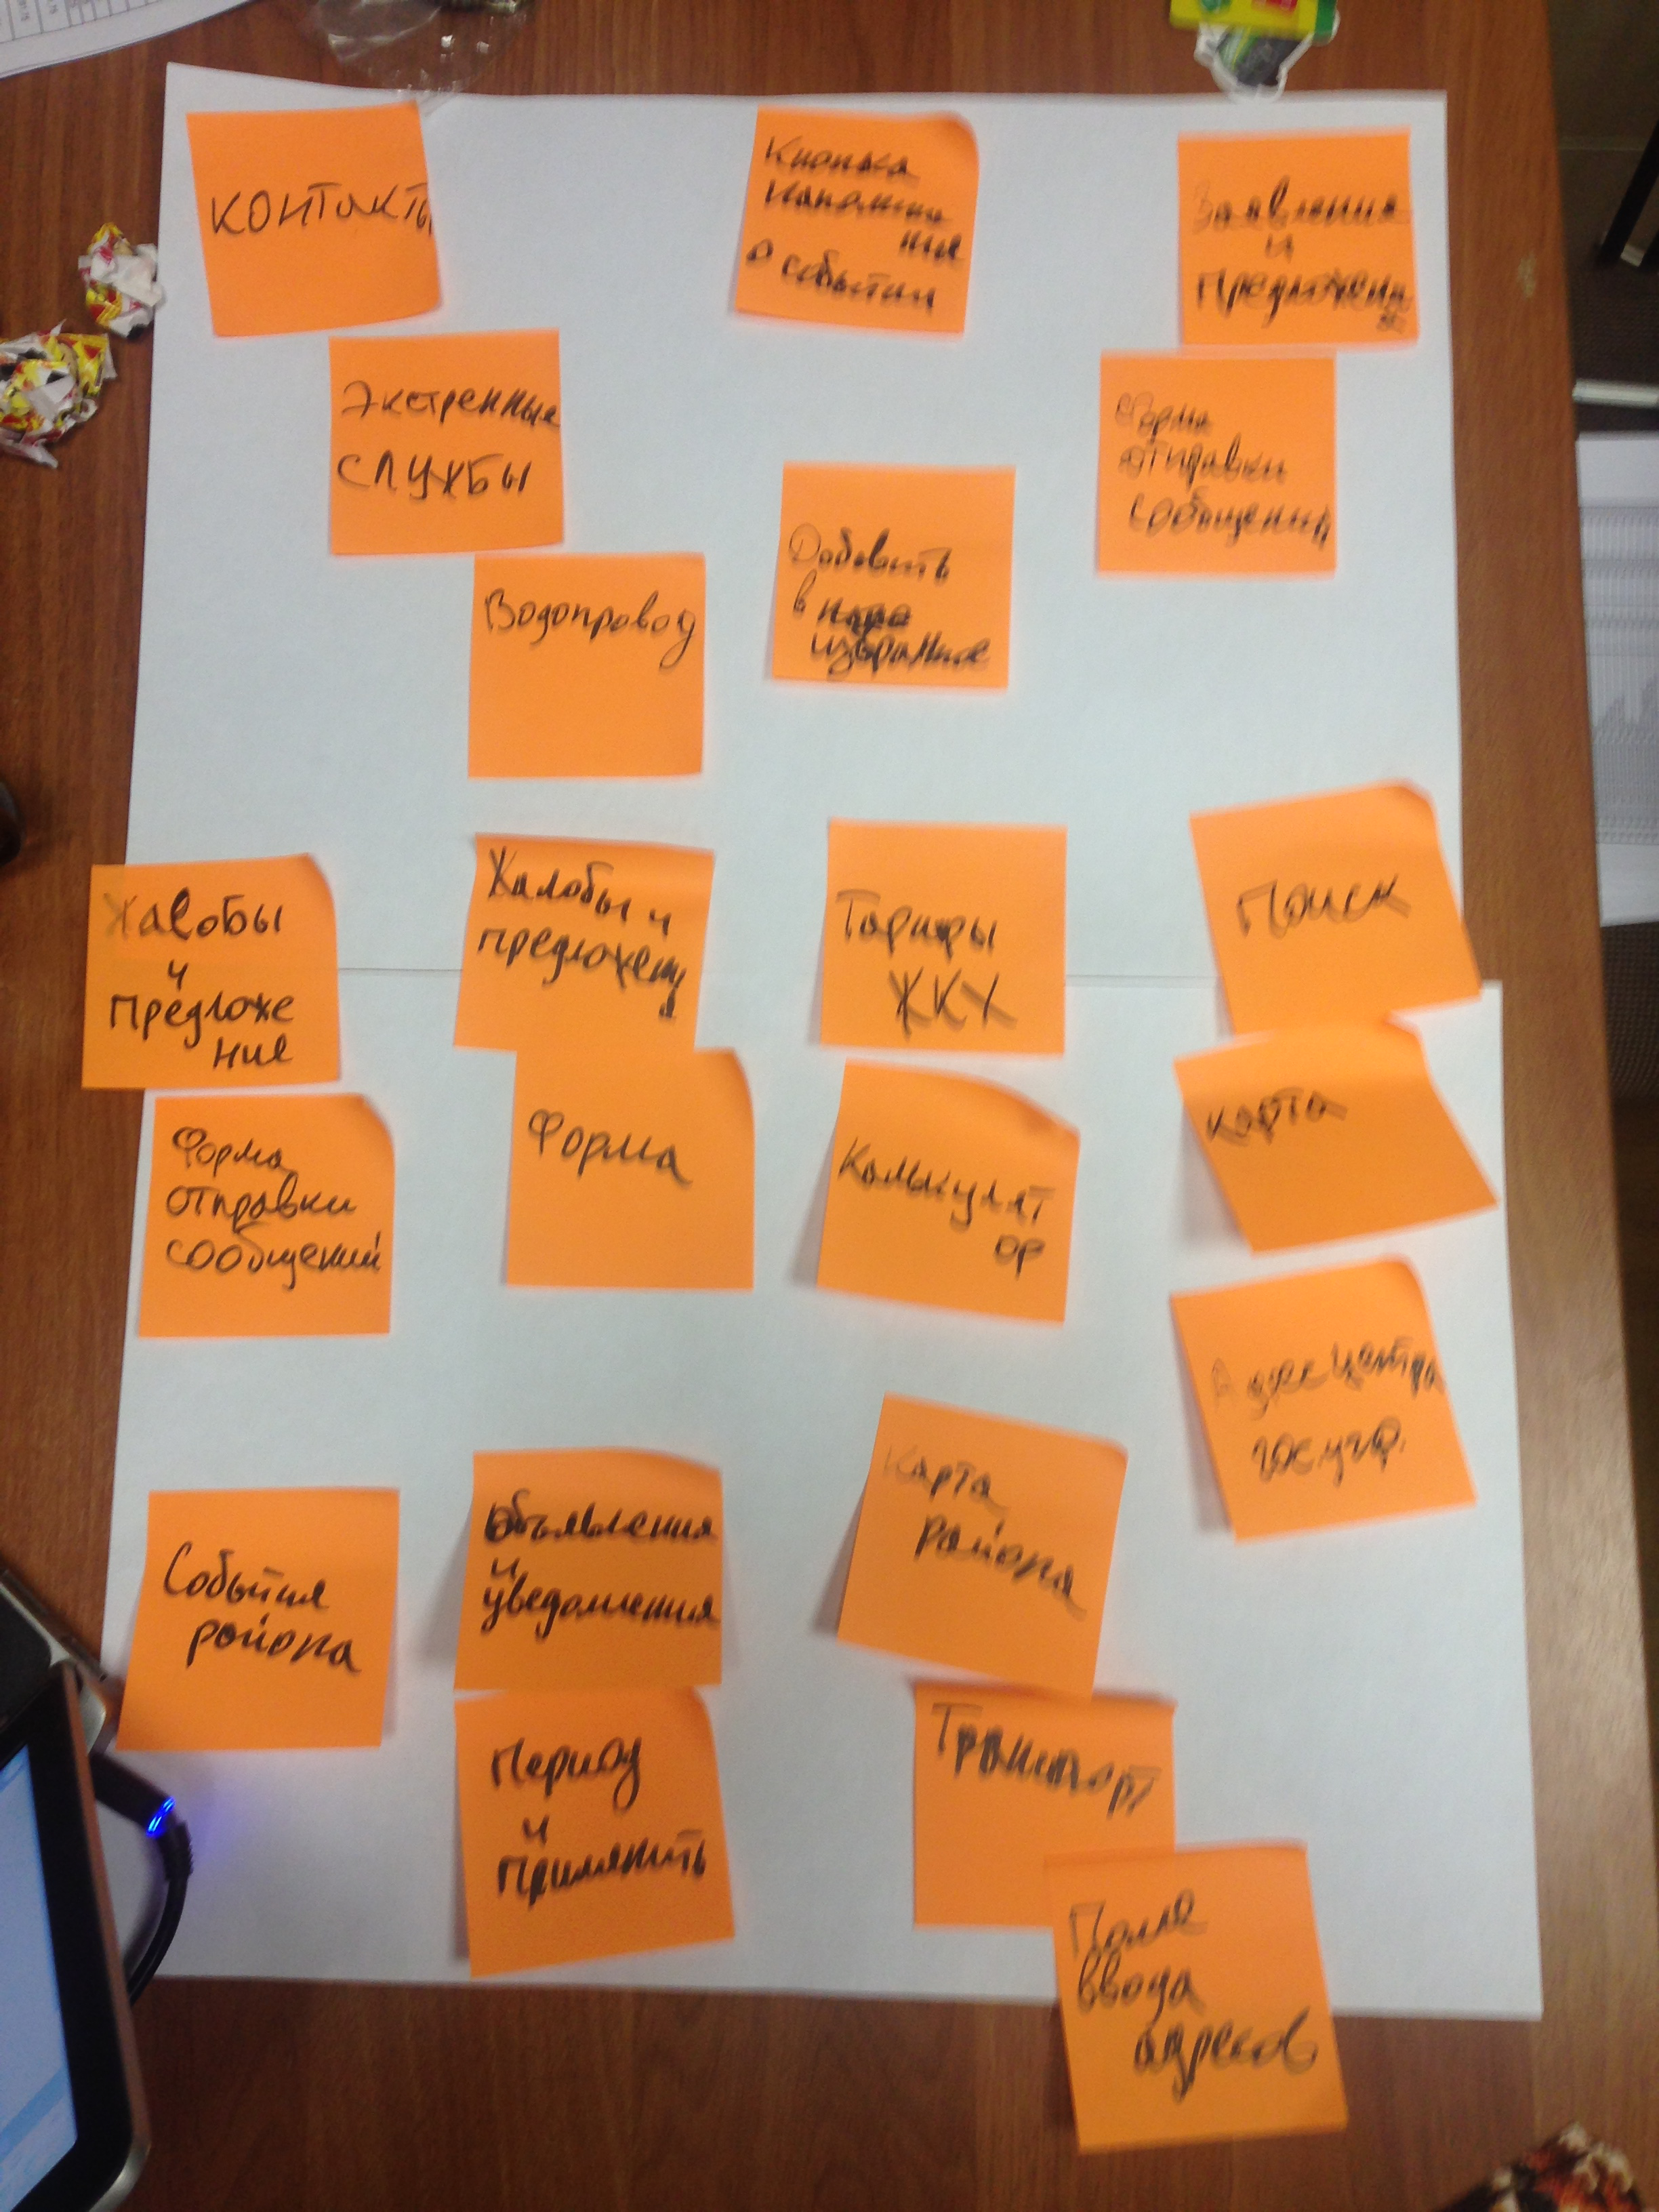 контакты
Кнопка
напомина
ние
о событии
Заявления
и
предложения
Экстренные
службы
Форма
отправки
сообщений
Добавить
в
избранные
Водопровод
Жалобы
и
предложе
ние
Жалобы и
предложени
я
Тарифы
ЖКХ
Поиск
Форма
отправки
сообщений
Форма
Калькулят
ор
карта
Адрес центра
гос.учр.
События
района
Объявления
и
уведомления
Карта
района
Период
и
применить
Транспорт
Поля
ввода
адресов